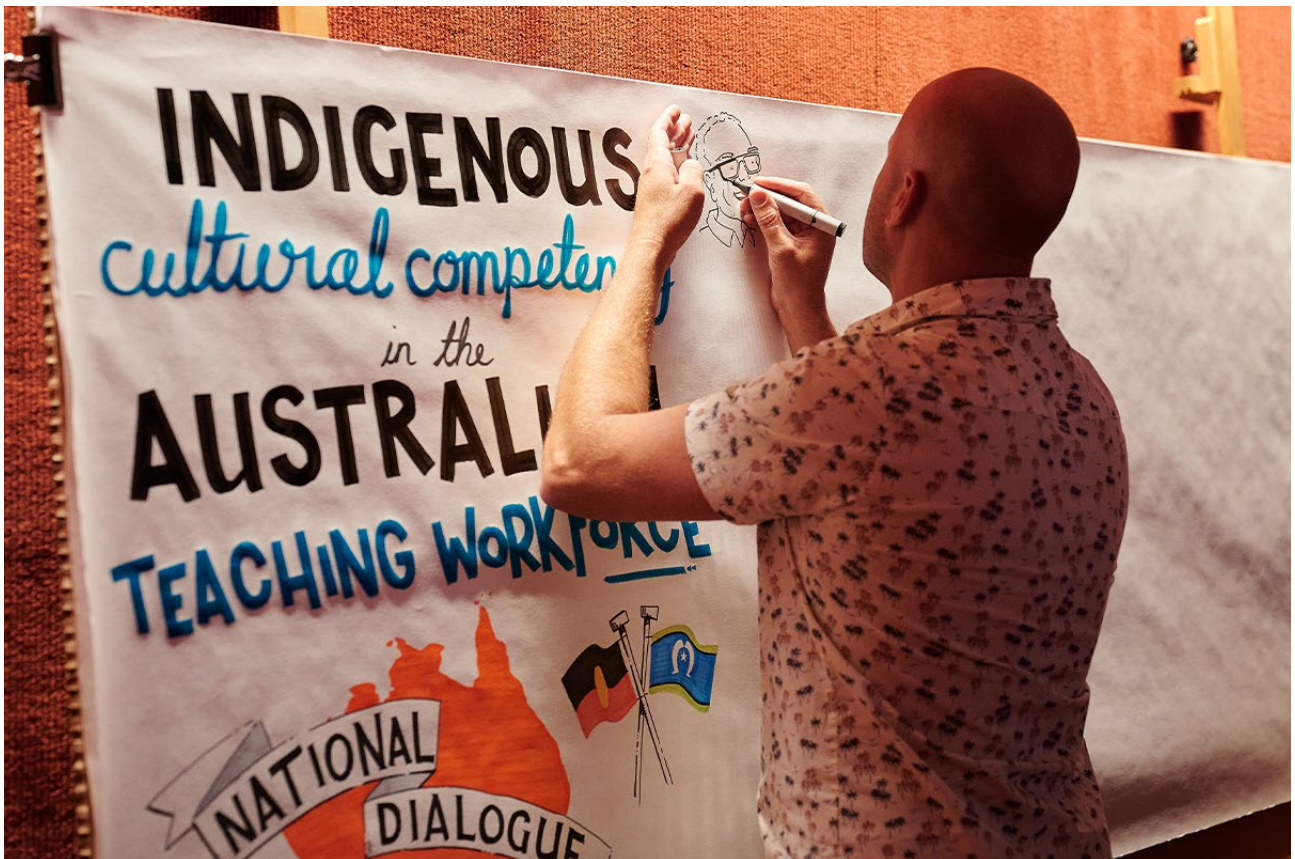 INDIGENOUS
cultural competency
in the
AUSTRALIAN
TEACHING WORKFORCE
NATIONAL
DIALOGUE